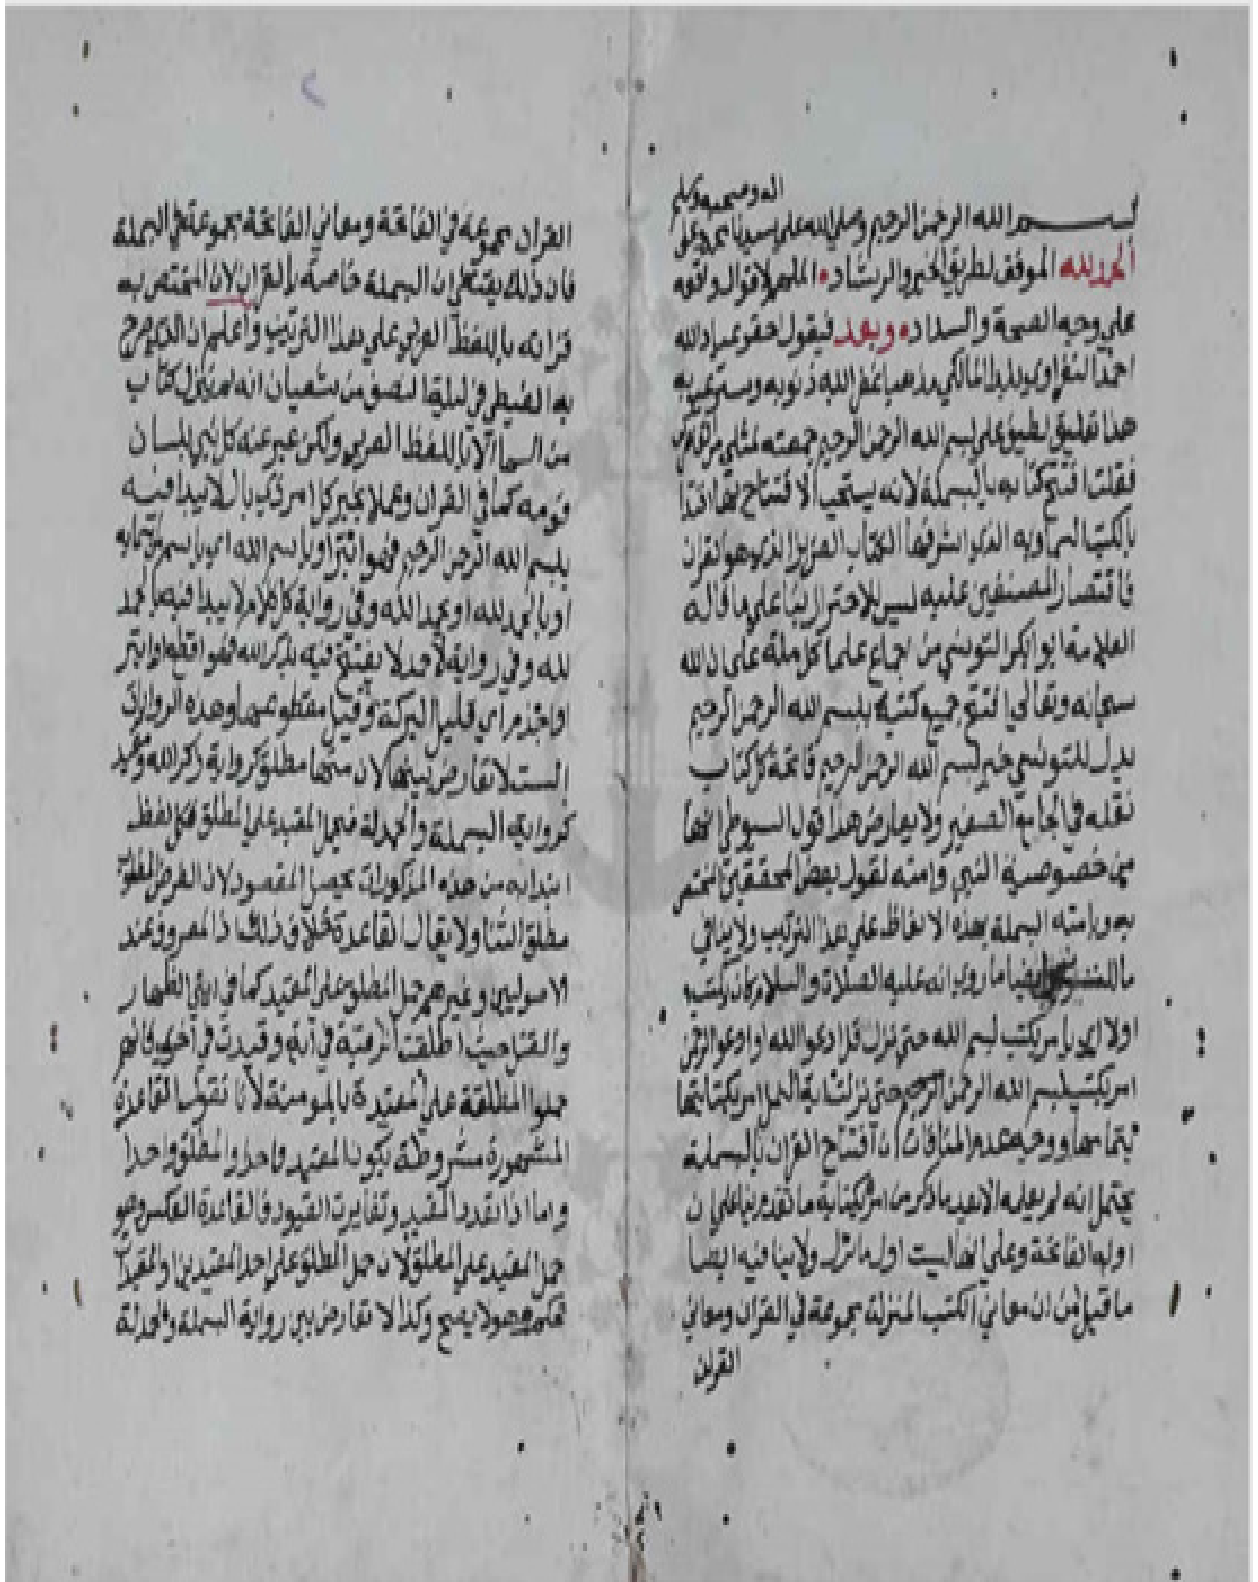 اله وصحبه وسلم
بسم الله الرحمن الرحيم وصلى الله على سيدنا محمد وعلى
الحمد لله الموفق لطريق الخير والرشاد الملهم لاقوال واقعه
على وجه الصحة والسداد وبعد فيقول احقر عباد الله
احمد النفراوي بلدا المالكي مذهبا غفر الله ذنوبه وستر عيوبه
هذا تعليق لطيف على بسم الله الرحمن الرحيم جمعته لمثلي
فقلت افتتح كتابه بالبسملة لانه يستحب الافتتاح بها اقتدا
بالكتب السماويه الذي اشرفها الكتاب العزيز الذي هو القران
فاقتصار المصنفين عليه ليس للاحتراز بنا على ما قاله
العلامة ابو ابكر التونسي من اجماع علما كل ملة على ان الله
سبحانه وتعالى افتتح جميع كتبه ببسم الله الرحمن الرحيم
يدل للتونسي خبر بسم الله الرحمن الرحيم فاتحة كل كتاب
نقله في الجامع الصغير ولا يعارض هذا قول السيوطي انها
من خصوصية النبي وامته لقول بعض المحققين المختص
به وبامته البسملة بهذه الالفاظ على هذا الترتيب ولا ينافي
ما ايضا ما روي انه عليه الصلاة والسلام كان يكتب
اولا اي يامر بكتب بسم الله حتى نزل قل ادعوا الله او ادعوا الرحمن
امر بكتب بسم الله الرحمن الرحيم حتى نزلت اية النمل امر بكتابتها
بتمامها ووجه عدم المنافات ان افتتاح القران بالبسملة
يحتمل انه لم يعلمه الا بعد ما ذكر من امر بكتابة ما تقدم بنا على ان
اوله الفاتحة وعلى انها ليست اول ما نزل ولا ينافيه ايضا
ما قيل من ان معاني الكتب المنزلة مجموعة في القران ومعاني
القران
القران مجموعة في الفاتحة ومعاني الفاتحة مجموعة في البسملة
فان ذلك يقتضي ان البسملة خاصة بالقران لان المختص به
قرانه باللفظ العربي على هذا الترتيب واعلم ان الذي صرح
به الغيطي في ليلة النصف من شعبان انه لم ينزل كتاب
من السما الا باللفظ العربي ولكن عبر عنه كل نبي بلسان
قومه كما في القران وعملا بخبر كل امر ذي بال لا يبدا فيه
ببسم الله الرحمن الرحيم فهو ابتر او باسم الله اي باسم من اسمايه
او بالحمد لله او بحمد الله وفي رواية كل كلام لا يبدا فيه بالحمد
لله وفي رواية لاحمد لا يفتتح فيه بذكر الله فهو اقطع او ابتر
او اجذم اي قليل البركة وقيل مقطوعها وهذه الروايات
الست لا تعارض بينها لان منها مطلق كرواية ذكر الله ومقيد
كرواية البسملة والحمدلة فيحمل المقيد على المطلق فكل لفظ
ابتدا به من هذه المذكورات يحصل المقصود لان الغرض المطلوب
مطلق الثنا ولا يقال القاعدة خلاف ذلك اذ المعروف عند
الاصوليين وغيرهم حمل المطلق على المقيد كما في ايتي الظهار
والقتل حيث اطلقت الرقبة في آية وقيدت في اخرى فانهم
حملوا المطلقة على المقيدة بالمومنة لانا نقول القاعدة
المشهورة مشروطة بكون المقيد واحدا والمطلق واحدا
واما اذا تعدد المقيد وتغايرت القيود فالقاعدة العكس وهو
حمل المقيد على المطلق لان حمل المطلق على احد المقيدين
تحكم وهو لا يصح وكذا لا تعارض بين رواية البسملة والحمدلة